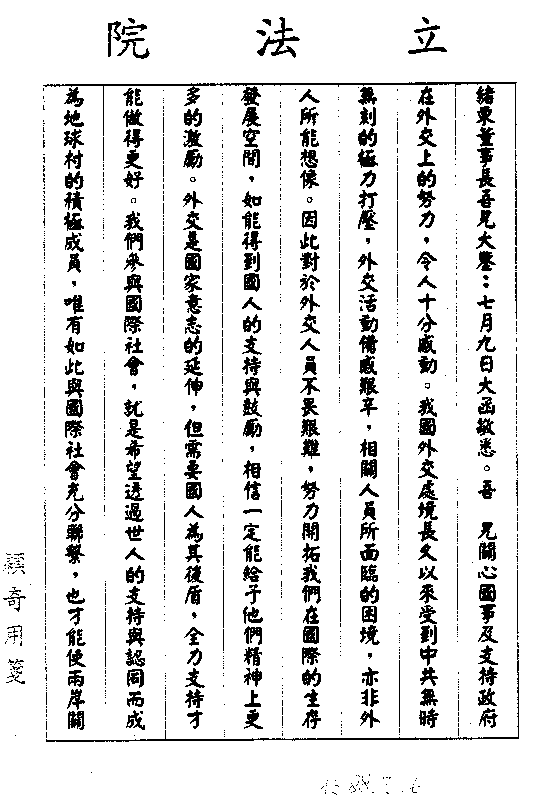 立法院
緒東董事長吾兄大鑒：七月九日大函敬悉。吾　兄關心國事及支持政府
在外交上的努力，令人十分感動。我國外交處境長久以來受到中共無時
無刻的極力打壓，外交活動備感艱辛，相關人員所面臨的困境，亦非外
人所能想像。因此對於外交人員不畏艱難，努力開拓我們在國際的生存
發展空間，如能得到國人的支持與鼓勵，相信一定能給予他們精神上更
多的激勵。外交是國家意志的延伸，但需要國人為其後盾，全力支持才
能做得更好。我們參與國際社會，就是希望透過世人的支持與認同而成
為地球村的積極成員，唯有如此與國際社會充分聯繫，也才能使兩岸關
用箋